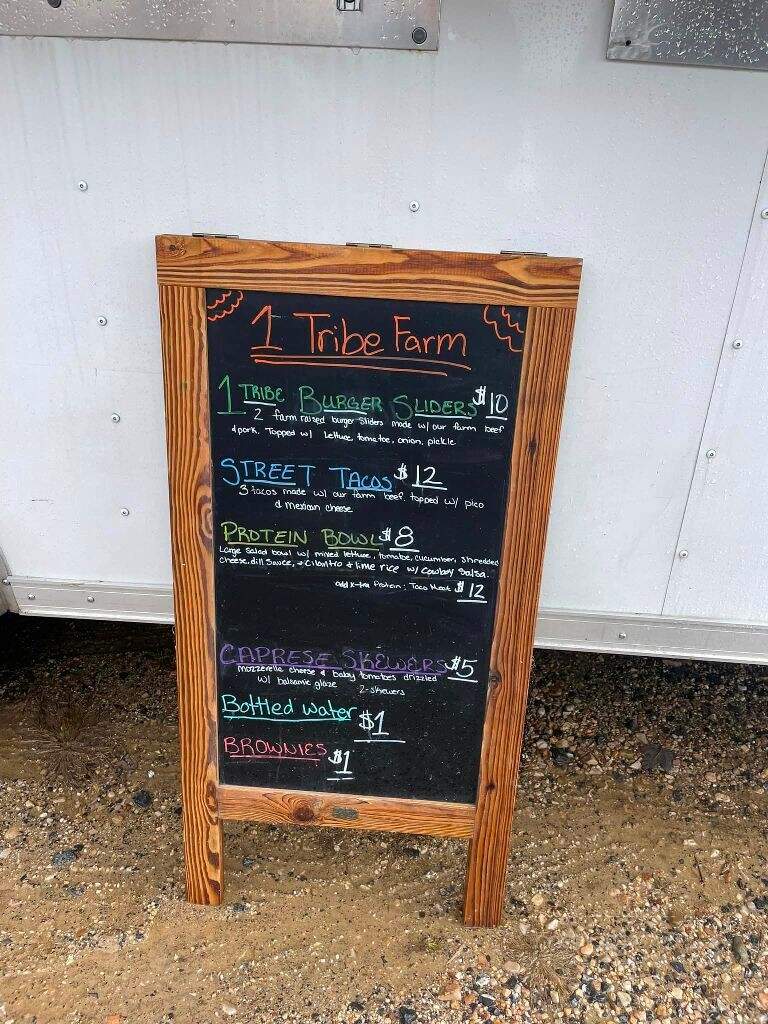 1 Tribe Farm
1 TRIBE BURGER SLIDERS $10
2 farm raised burger sliders made w/ our farm beef
& pork. Topped w/ Lettuce, tomatoe, onion, pickle
STREET TACOS $12
3 tacos made w/ our farm beef. topped w/ pico
& mexican cheese
PROTEIN BOWL $8
Large salad bowl w/ mixed lettuce, tomatoe, cucumber, shredded
cheese, dill sauce, + cilantro & lime rice w/ Cowboy Salsa.
add x-tra Protein: Taco Meat $12
CAPRESE SKEWERS $5
mozzerella cheese & baby tomatoes drizzled
w/ balsamic glaze 2-skewers
Bottled water $1
BROWNIES $1